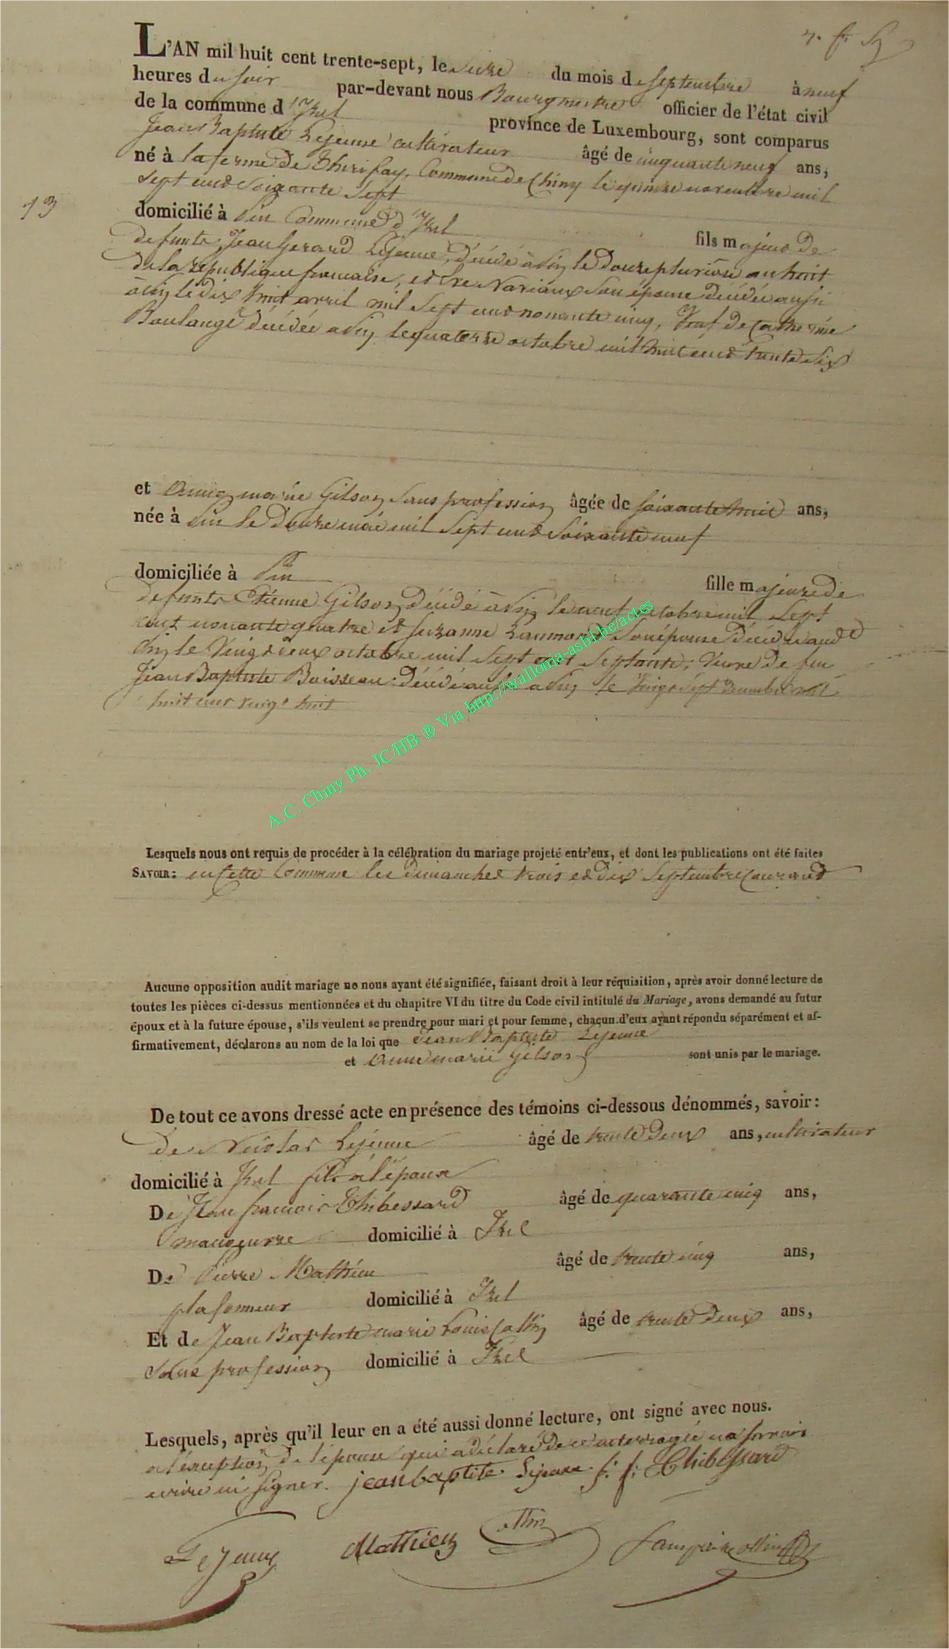 L'AN mil huit cent trente-sept, le seize du mois de septembre à neuf
heures du soir par-devant nous Bourgmestre officier de l'état civil
de la commune d'Izel province de Luxembourg, sont comparus
Jean Baptiste Lejeune cultivateur âgé de cinquante neuf ans,
né à la ferme de Thirifay, Commune de Chiny le quinze novembre mil
sept cent soixante sept
13
domicilié à Pin Commune d'Izel fils majeur de
defunts Jean Gerard Lejeune, décédé à Pin le douze pluviôse an huit
de la république francaise, et son épouse décédée aussi
à Pin le dix huit avril mil sept cent nonante cinq, Veuf de Catherine
Boulangé décédée à Pin le quatorze octobre mil huit cent trente six
et Anne marie Gilson sans profession âgée de soixante huit ans,
née à Pin le douze mai mil sept cent soixante neuf
domiciliée à Pin fille majeure de
defunts Etienne Gilson décédé à Pin le neuf octobre mil sept
cent nonante quatre et Suzanne son épouse décédée audit
Pin le vingt deux octobre mil sept cent septante; Veuve de feu
Jean Baptiste Buisseau décédé aussi à Pin le vingt sept mil
huit cent vingt huit
A.C. Chiny Ph. JC.HB ® Via http://wallonia-asbl.be/actes
Lesquels nous ont requis de procéder à la célébration du mariage projeté entr'eux, et dont les publications ont été faites
SAVOIR: en cette Commune les dimanches trois et dix septembre courant
Aucune opposition audit mariage ne nous ayant été signifiée, faisant droit à leur réquisition, après avoir donné lecture de
toutes les pièces ci-dessus mentionnées et du chapitre VI du titre du Code civil intitulé du Mariage, avons demandé au futur
époux et à la future épouse, s'ils veulent se prendre pour mari et pour femme, chacun d'eux ayant répondu séparément et af-
firmativement, déclarons au nom de la loi que Jean Baptiste Lejeune
et Anne marie Gilson sont unis par le mariage.
De tout ce avons dressé acte en présence des témoins ci-dessous dénommés, savoir:
de Nicolas Lejeune âgé de trente deux ans, cultivateur
domicilié à Izel fils à l'époux
De Jean francois Thibessard âgé de quarante cinq ans,
manœuvre domicilié à Izel
De Pierre Mathieu âgé de trente cinq ans,
plafonneur domicilié à Izel
Et de Jean Baptiste marie Louis Collin âgé de trente deux ans,
sans profession domicilié à Izel
Lesquels, après qu'il leur en a été aussi donné lecture, ont signé avec nous.
a l'exception de l'épouse qui a déclaré de ce interrogée ne savoir
ecrire ni signer. jean baptiste Lejeune j. f. Thibessard
Lejeune Mathieu Collin